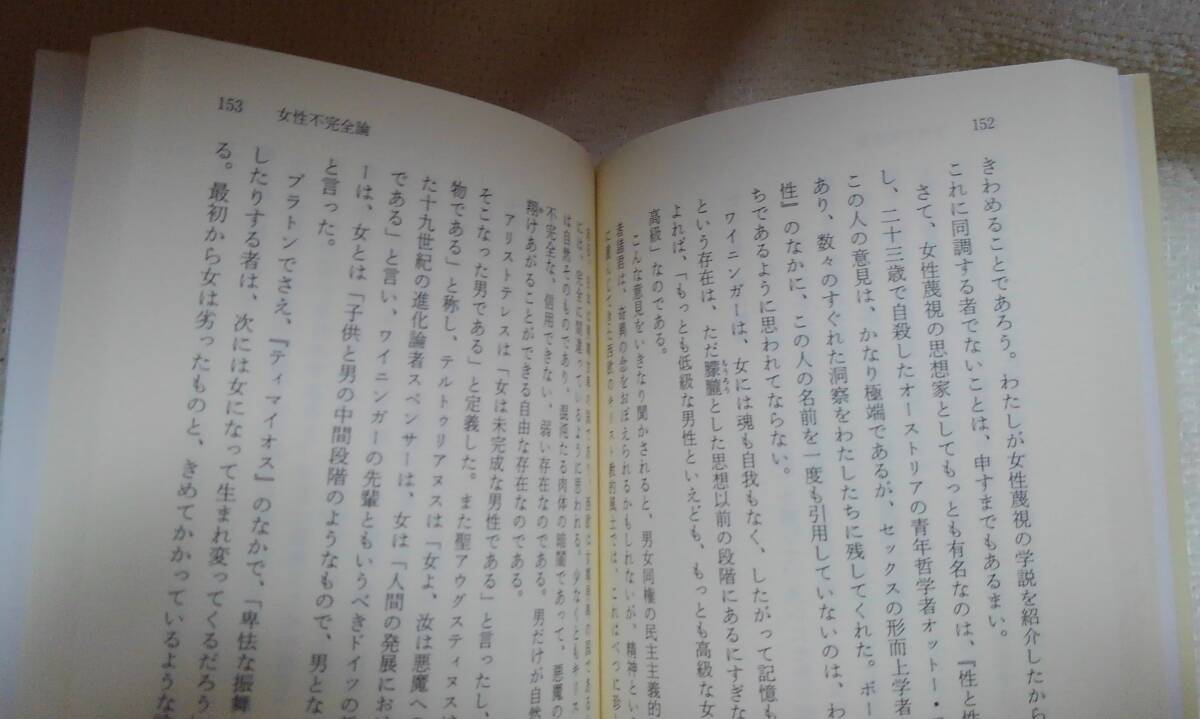 152
きわめることであろう。わたしが女性蔑視の学説を紹介したから
これに同調する者でないことは、申すまでもあるまい。
さて、女性蔑視の思想家としてもっとも有名なのは、『性と性
し、二十三歳で自殺したオーストリアの青年哲学者オットー・
この人の意見は、かなり極端であるが、セックスの形而上学者
あり、数々のすぐれた洞察をわたしたちに残してくれた。ボー
性』のなかに、この人の名前を一度も引用していないのは、わ
ちであるように思われてならない。
ワイニンガーは、女には魂も自我もなく、したがって記憶も
という存在は、ただ朦朧とした思想以前の段階にあるにすぎな
もうろう
よれば、「もっとも低級な男性といえども、もっとも高級な女
高級」なのである。
こんな意見をいきなり聞かされると、男女同権の民主主義的
者諸君は、奇異の念をおぼえられるかもしれないが、精神とい
153
女性不完全論
には、完全に間違っているように思われる。少なくともキリス
は自然そのものであり、混沌たる肉体の暗闇であって、悪魔の
不完全な、信用できない、弱い存在なのである。男だけが自然
翔けあがることができる自由な存在なのである。
か
アリストテレスは「女は未完成な男性である」と言ったし、
そこなった男である」と定義した。また聖アウグスティヌスは
物である」と称し、テルトゥリアヌスは「女よ、汝は悪魔への
た十九世紀の進化論者スペンサーは、女は「人間の発展におけ
である」と言い、ワイニンガーの先輩ともいうべきドイツの
ーは、女とは「子供と男の中間段階のようなもので、男とな
と言った。
プラトンでさえ、『ティマイオス』のなかで、「卑怯な振舞
したりする者は、次には女になって生まれ変ってくるだろう
る。最初から女は劣ったものと、きめてかかっているような